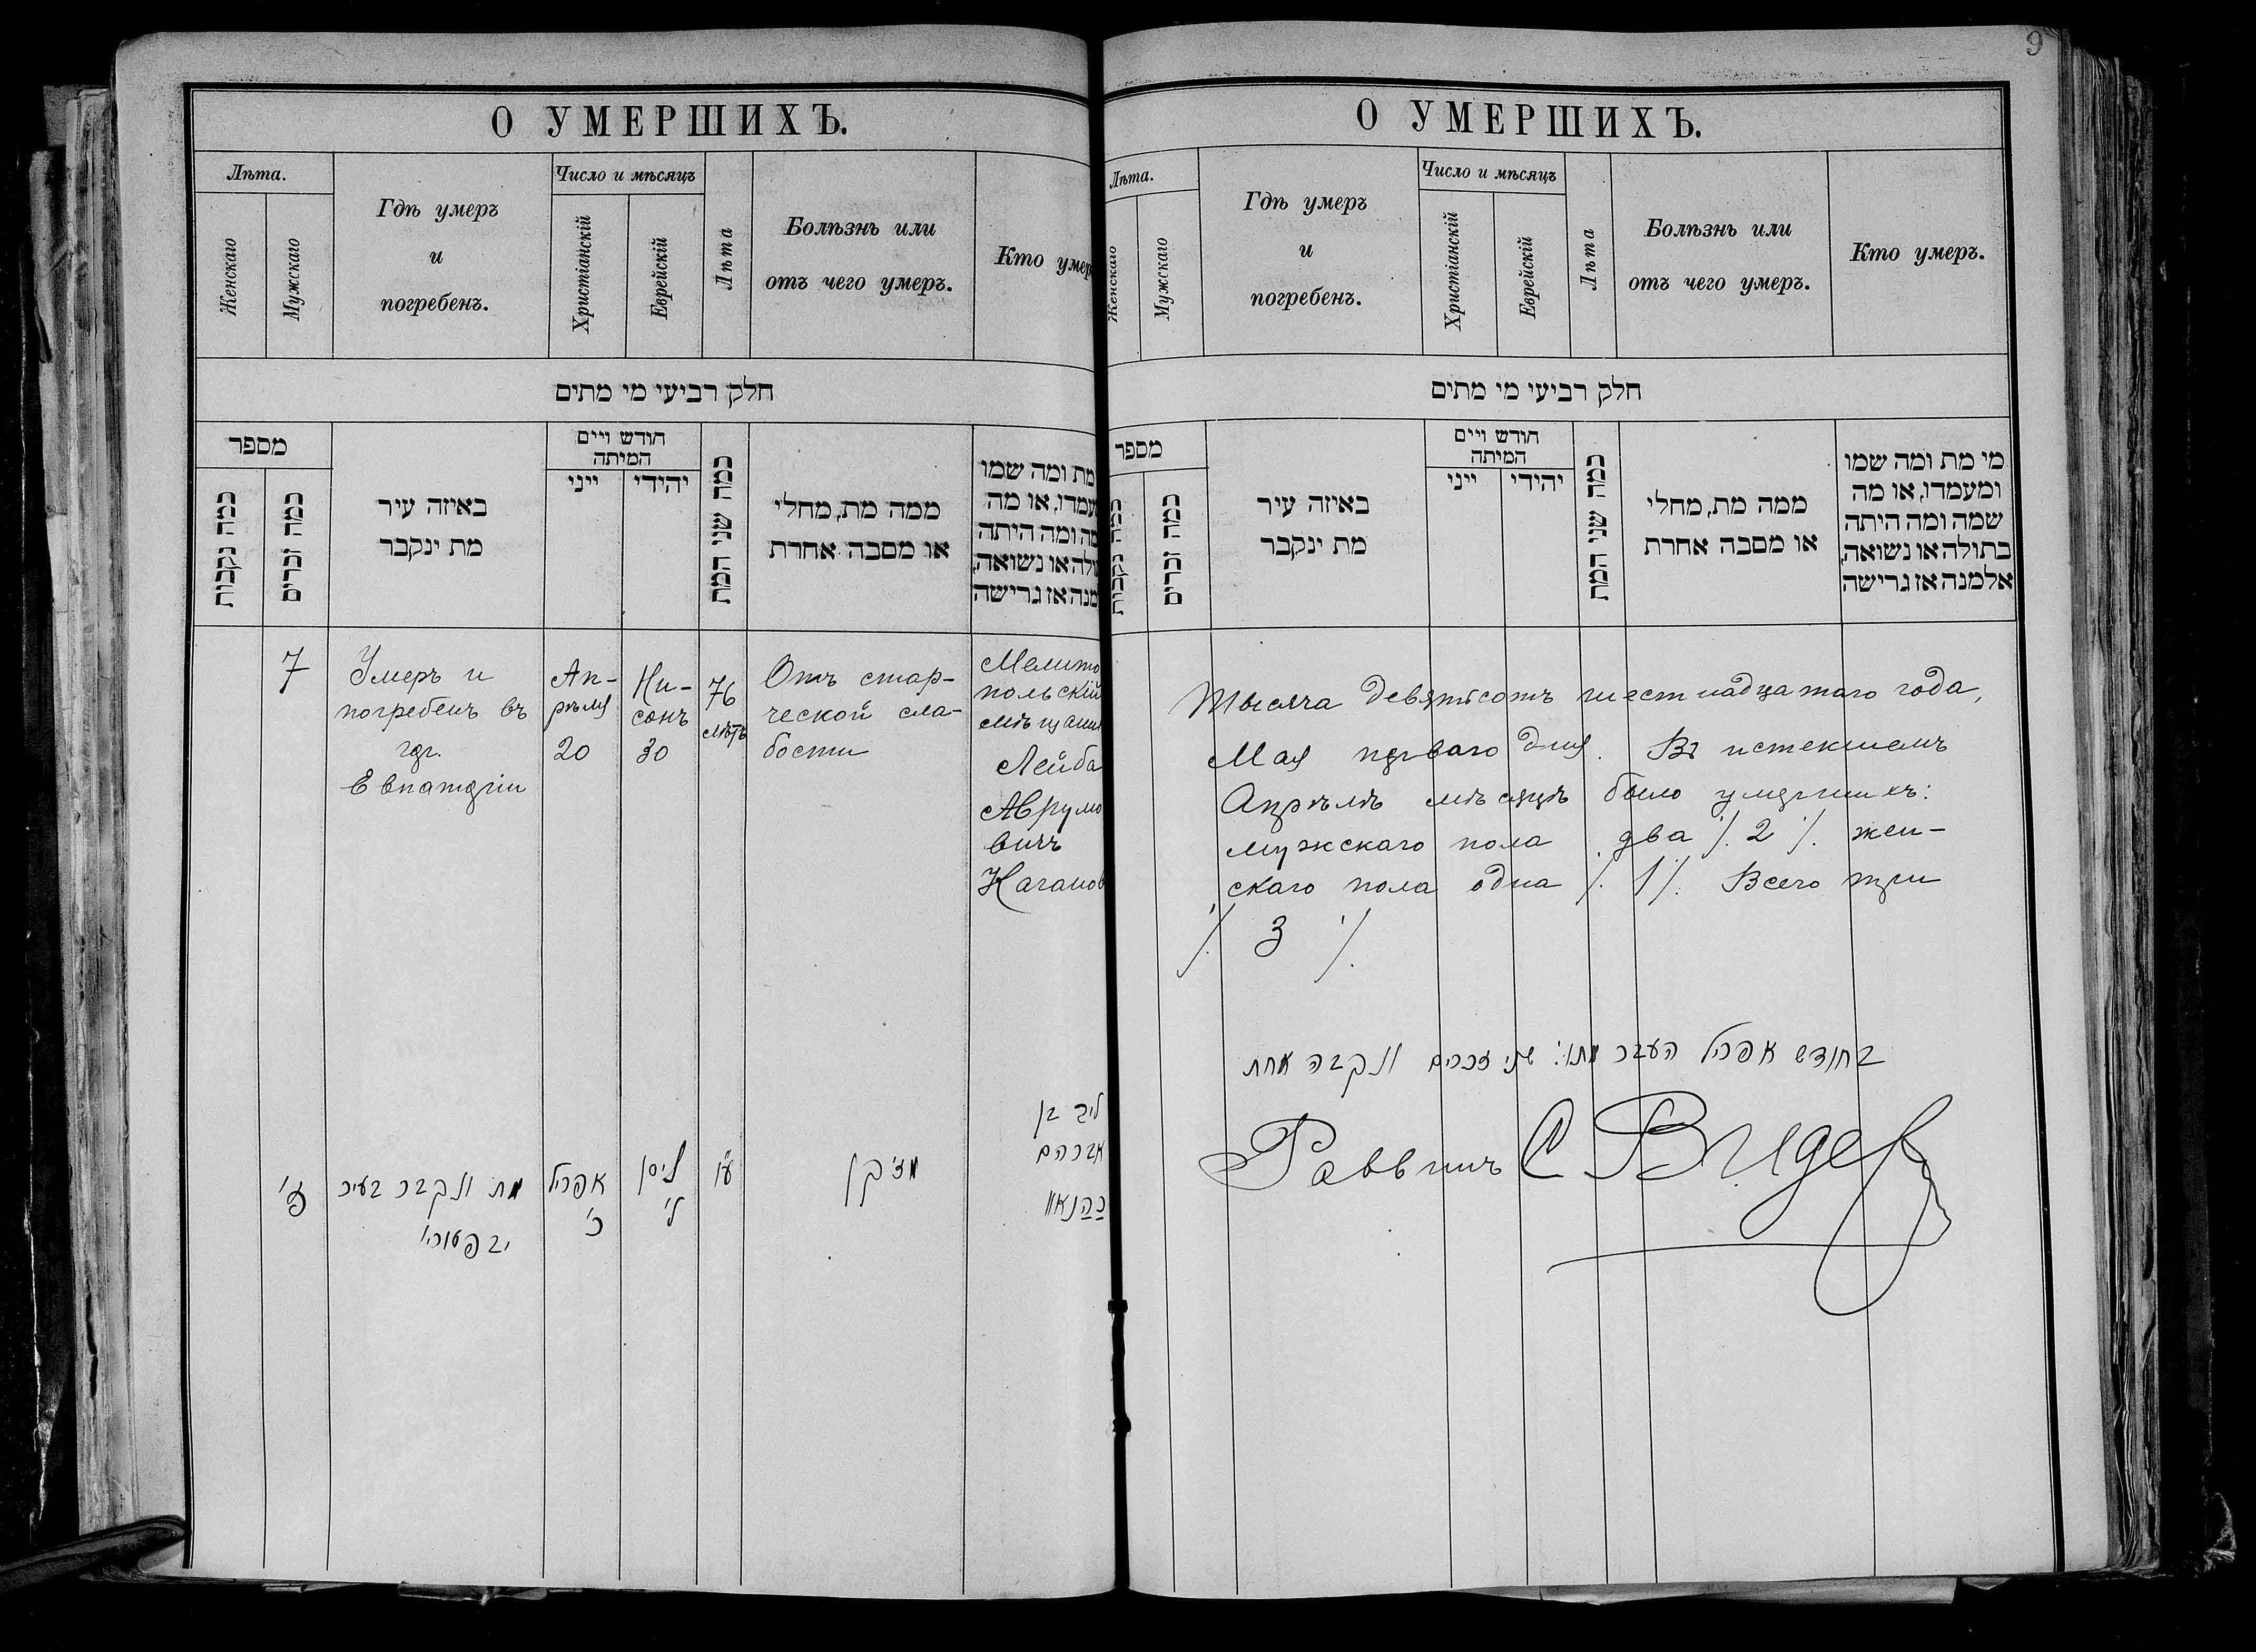 О УМЕРШИХЪ.
Лѣта.
Женскаго
Мужскаго
Гдѣ умеръ
и
погребенъ.
Число и мѣсяцъ
Христіанскій
Еврейскій
Лѣта
Болѣзнь или
отъ чего умеръ.
Кто умер
חלק רביעי מי מתים
מספר
כמה נקבות
כמה זכרים
באיזה עיר
מת ינקבר
חודש ויים
המיתה
ייני
יהידי
כמה שני המת
ממה מת, מחלי
או מסבה אחרת
מת ומה שמו
עמדו, או מה
מה ומה היתה
ולה או נשואה,
מנה אז גרישה
7
Умеръ и
погребенъ въ
гор.
Евпаторіи
Ап-
рѣля
20
Ни-
сонъ
30
76
лѣтъ
Отъ стар-
ческой сла-
бости
Мелито
польскій
мѣщанин
Лейба
Аврумо
вичъ
Каганов
ז'
מת ונקבר בעיר
יבפטורי'
אפריל
כ'
ניסן
ל'
ע"ו
מזקן
ליב בן
אברהם
כהנאוו
9
О УМЕРШИХЪ.
Лѣта.
Женскаго
Мужскаго
Гдѣ умеръ
и
погребенъ.
Число и мѣсяцъ
Христіанскій
Еврейскій
Лѣта
Болѣзнь или
отъ чего умеръ.
Кто умеръ.
חלק רביעי מי מתים
מספר
כמה נקבות
כמה זכרים
באיזה עיר
מת ינקבר
חודש ויים
המיתה
ייני
יהידי
כמה שני המת
ממה מת, מחלי
או מסבה אחרת
מי מת ומה שמו
ומעמדו, או מה
שמה ומה היתה
בתולה או נשואה,
אלמנה אז גרישה
Тысяча девятьсотъ шестнадцатаго года,
Мая перваго дня. Въ истекшемъ
Апрѣлѣ мѣсяцѣ было умершихъ:
мужскаго пола два /. 2 /. жен-
скаго пола одна /. 1 /. Всего три
/. 3 /.
בחודש אפריל העבר מתו: שני זכרים ונקבה אחת
Раввинъ С Видер